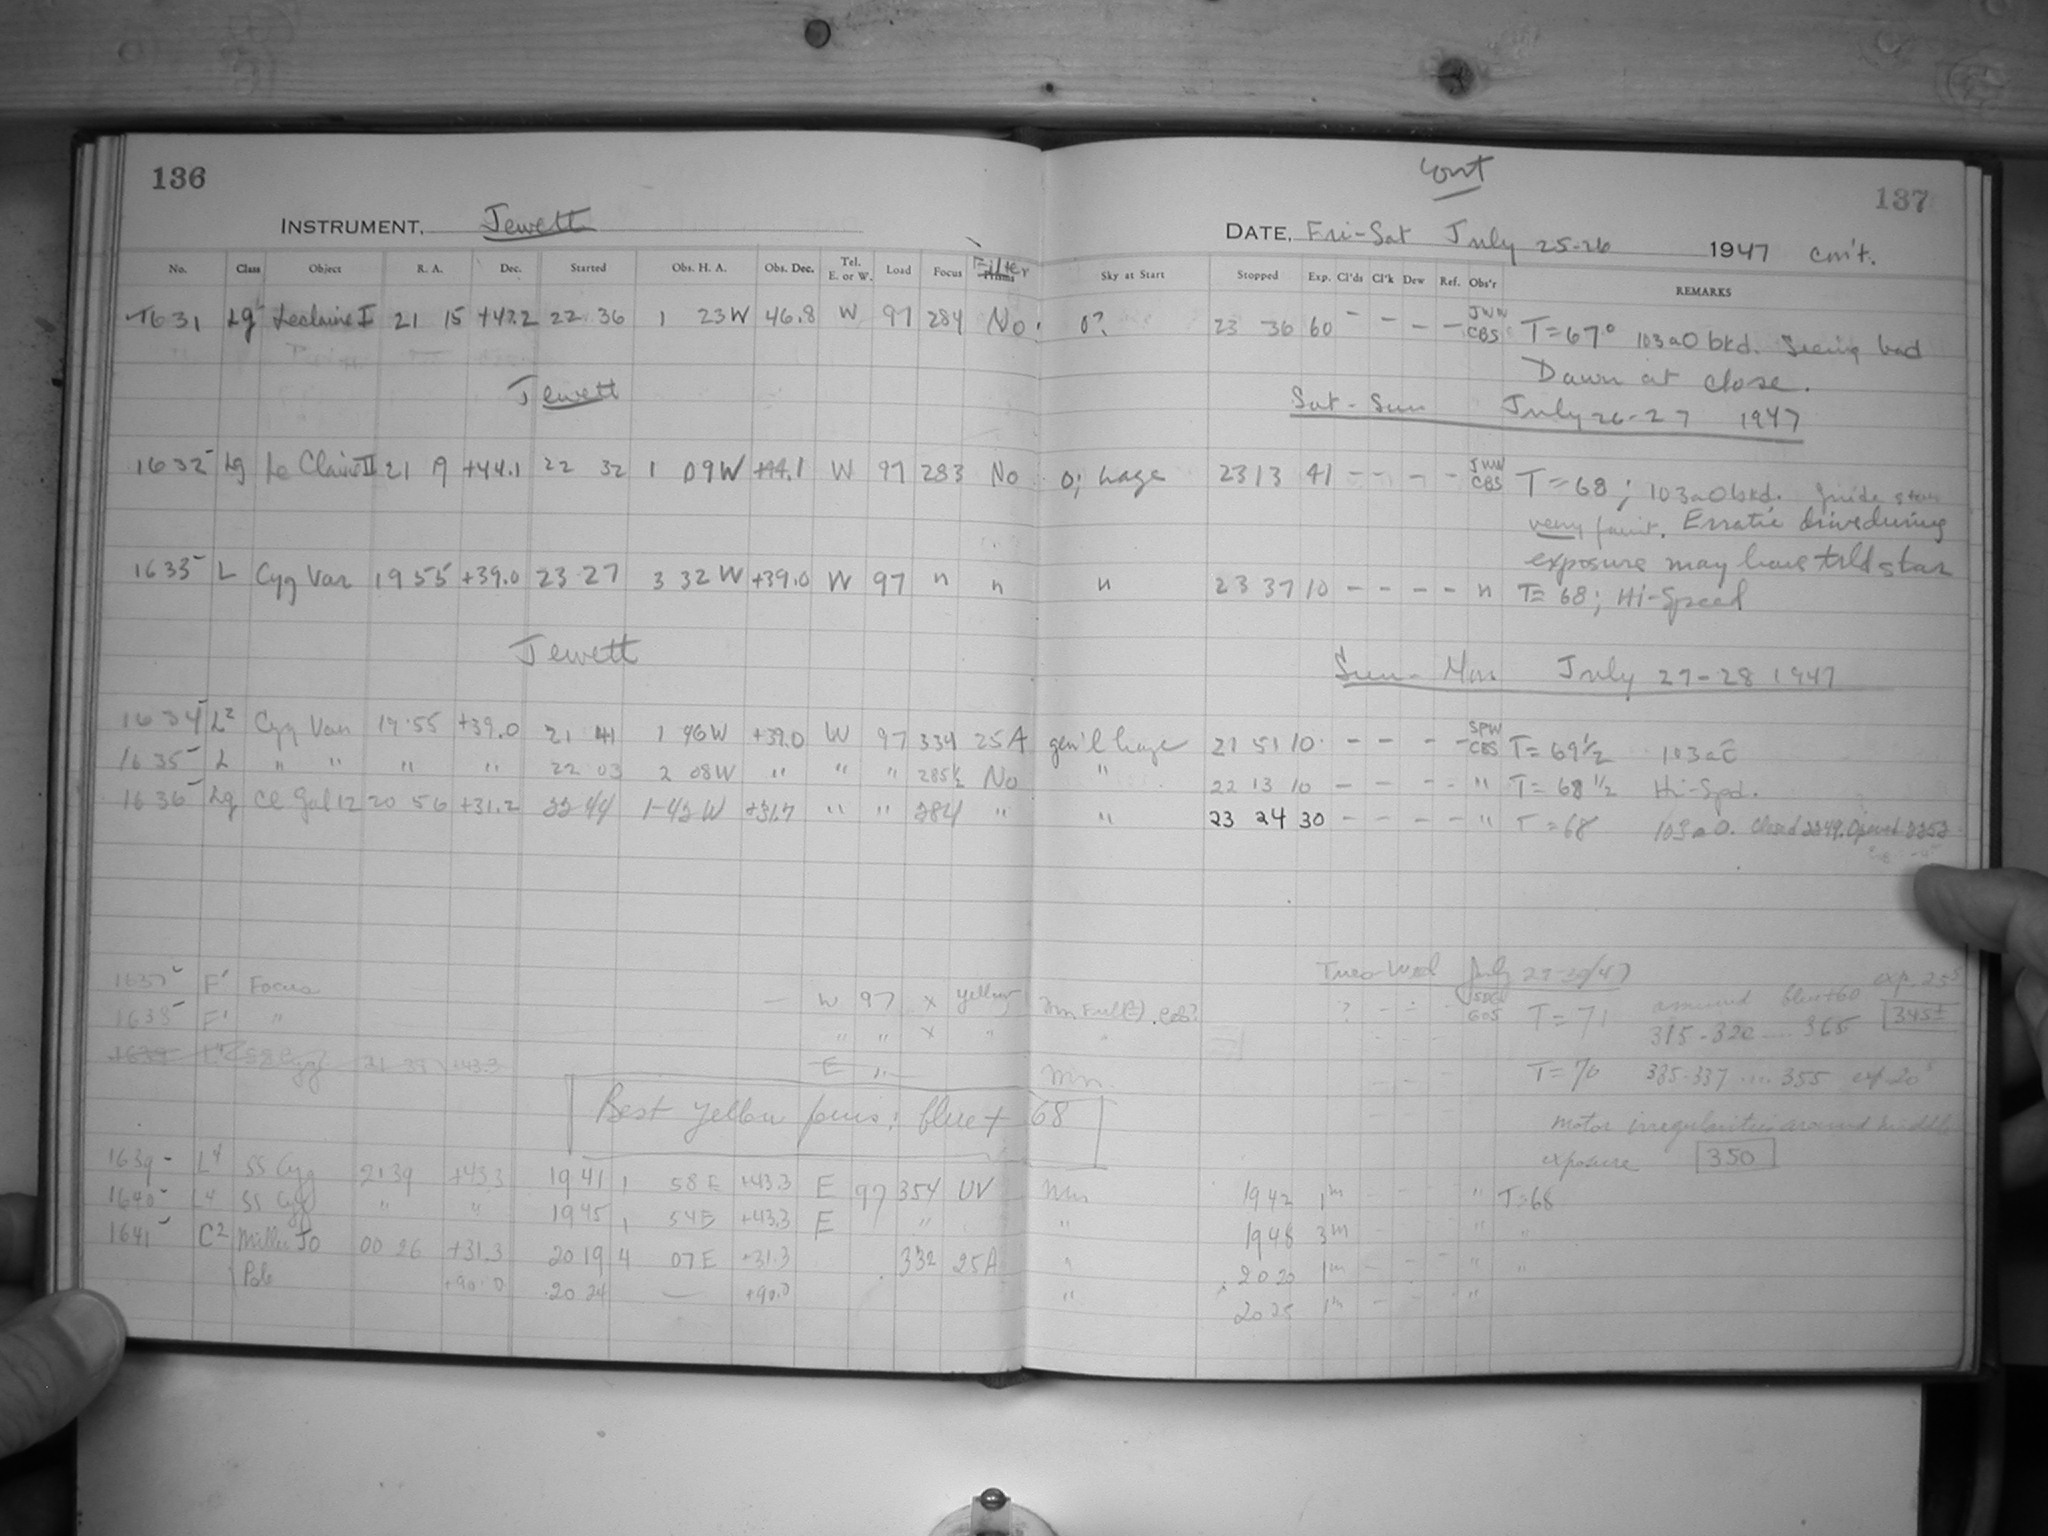 136
cont
137
INSTRUMENT, Jewett
DATE, Fri-Sat July 25-26 1947 con't.
No. Class Object R. A. Dec. Started Obs. H. A. Obs. Dec. Tel. E. or W. Load Focus Filter Sky at Start Stopped Exp. Cl'ds Cl'k Dew Ref. Obs'r REMARKS
1631 Lg Leclaire I 21 15 +47.2 22 36 1 23W 46.8 W 97 284 No. 0? 23 36 60 - - - - JWW CBS T=67° 103aO bkd. Seeing bad
Dawn at close.
Jewett Sat-Sun July 26-27 1947
1632 Lg Le Claire II 21 9 +44.1 22 32 1 09W +44.1 W 97 283 No 0; haze 23 13 41 - - - - JWW CBS T=68; 103aO bkd. Guide star
very faint. Erratic drive during
exposure may have trld star
1633 L Cyg Var 19 55 +39.0 23 27 3 32 W +39.0 W 97 " " " 23 37 10 - - - - " T=68; Hi-Speed
Jewett Sun-Mon July 27-28 1947
1634 L2 Cyg Var 19 55 +39.0 21 41 1 46W +39.0 W 97 334 25A gen'l haze 21 51 10 - - - - SPW CBS T=69½ 103aE
1635 L " " " " 22 03 2 08W " " " 285½ No " 22 13 10 - - - - " T=68½ Hi-Spd.
1636 Lg Cl Gal 12 20 56 +31.2 22 44 1-42 W +31.7 " " 284 " " 23 24 30 - - - - " T=68 103aO. Closed 2249. Opened 2252
Tues-Wed July 29-30/47
1637 F' Focus — W 97 x yellow ? - - - T=71 assumed blue+60 exp. 25s
1638 F' " " " x " 315-320....365 345±
1639 L4 SS Cyg 21 39 +43.3 E " Mn. T=70 335-337....355 exp 20s
Best yellow focus: blue + 68
Motor irregularities around middle
exposure 350
1639 L4 SS Cyg 21 39 +43.3 19 41 1 58 E +43.3 E 97 354 UV Mn 19 42 1m - - - " T=68
1640 L4 SS Cyg " " 19 45 1 54E +43.3 E " " 19 48 3m " "
1641 C2 Miller JO 00 26 +31.3 20 19 4 07E +31.3 332 25A " 20 20 1m - - - " "
Pole +90.0 20 24 — +90.0 " 20 25 1m - - - "